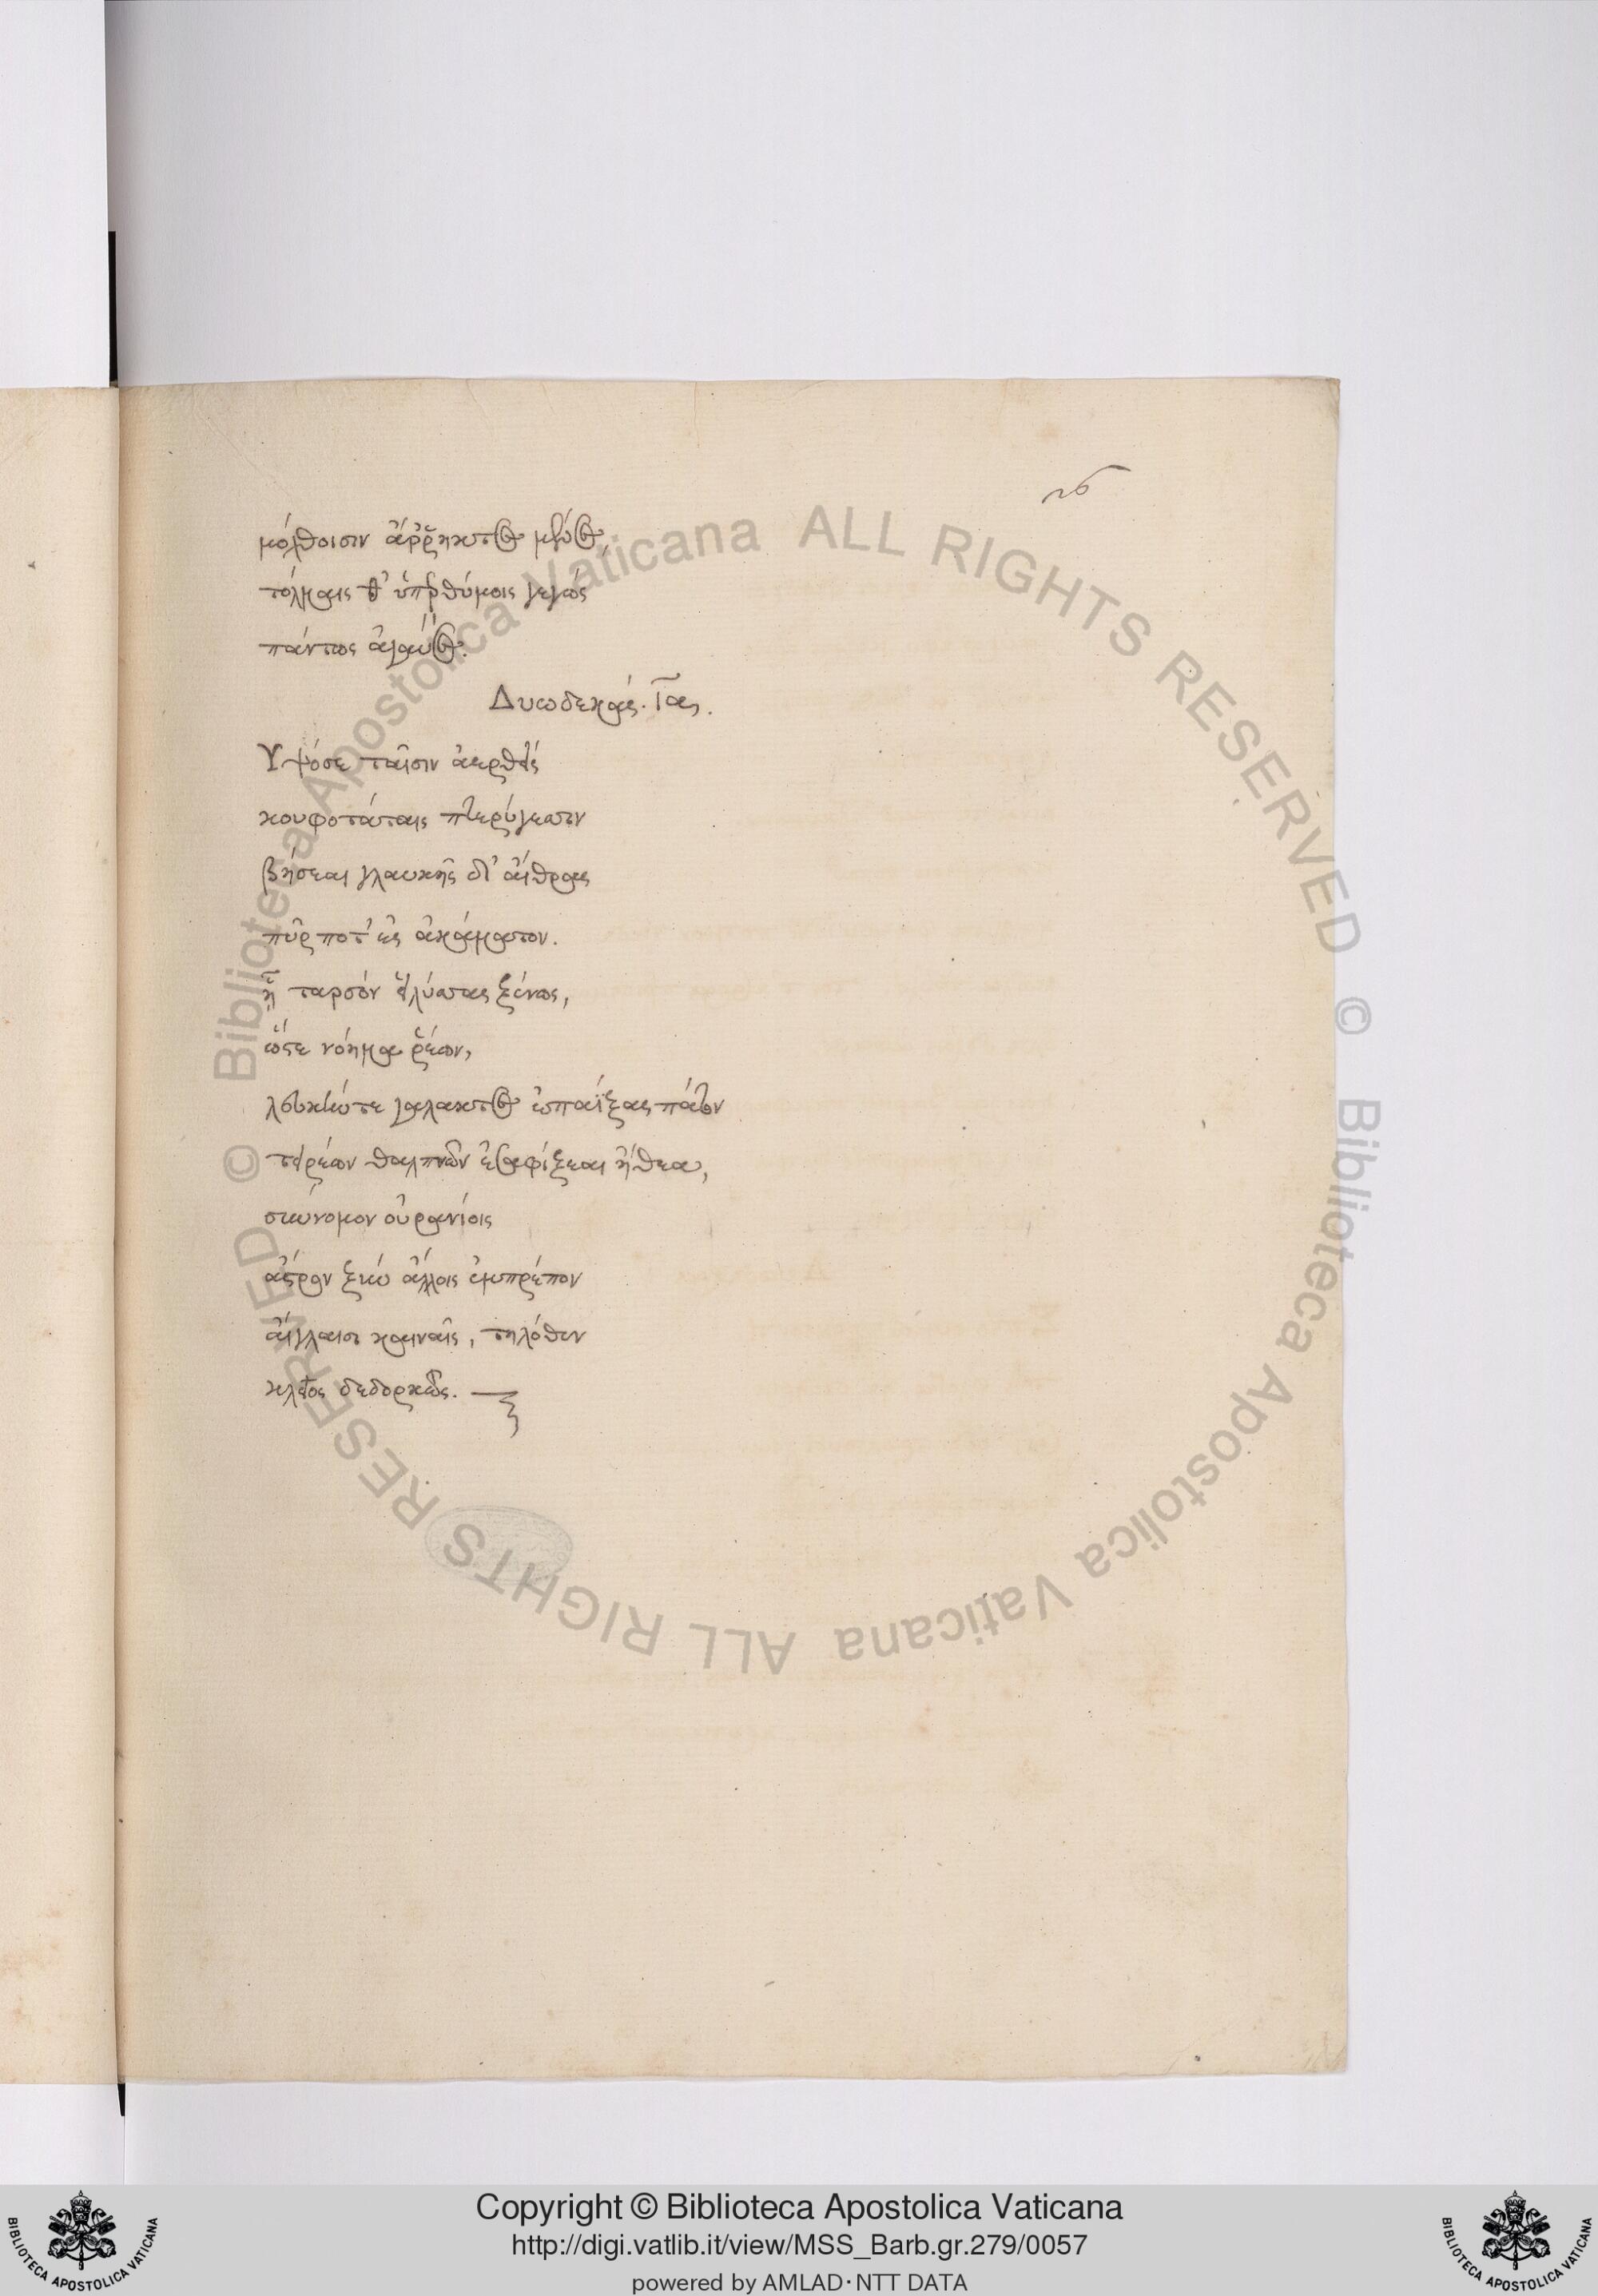 μόχθοισιν ἄῤῥηκτος μένος,
τόλμαις θ' ὑπερθύμοις γεγώς
πάντως ἀγαυός.
Δυωδεκάς. Γας.
Υψόσε ταῖσιν ἀερθείς
κουφοτάταις πτερύγεσσιν
βήσεαι γλαυκῆς δι' αἴθρας
πῦρ ποτ' ἐς ἀκάματον.
ᾗ ταρσὸν ξένως,
ὥστε νόημα ῥέων,
λευκήν τε γαλακτος ἐπαΐξας πάτον
τειρέων θαλπνῶν ἀφίξεαι ἤθεα,
σύννομον οὐρανίοις
ἄστρον ξὺν ἄλλοις ἐμπρέπον
αἴγλαισι καιναῖς, τηλόθεν
κλεῖος δεδορκώς.
© Biblioteca Apostolica Vaticana ALL RIGHTS RESERVED © Biblioteca Apostolica Vaticana ALL RIGHTS RESERVED
BIBLIOTECA APOSTOLICA VATICANA
Copyright © Biblioteca Apostolica Vaticana
http://digi.vatlib.it/view/MSS_Barb.gr.279/0057
powered by AMLAD·NTT DATA
BIBLIOTECA APOSTOLICA VATICANA